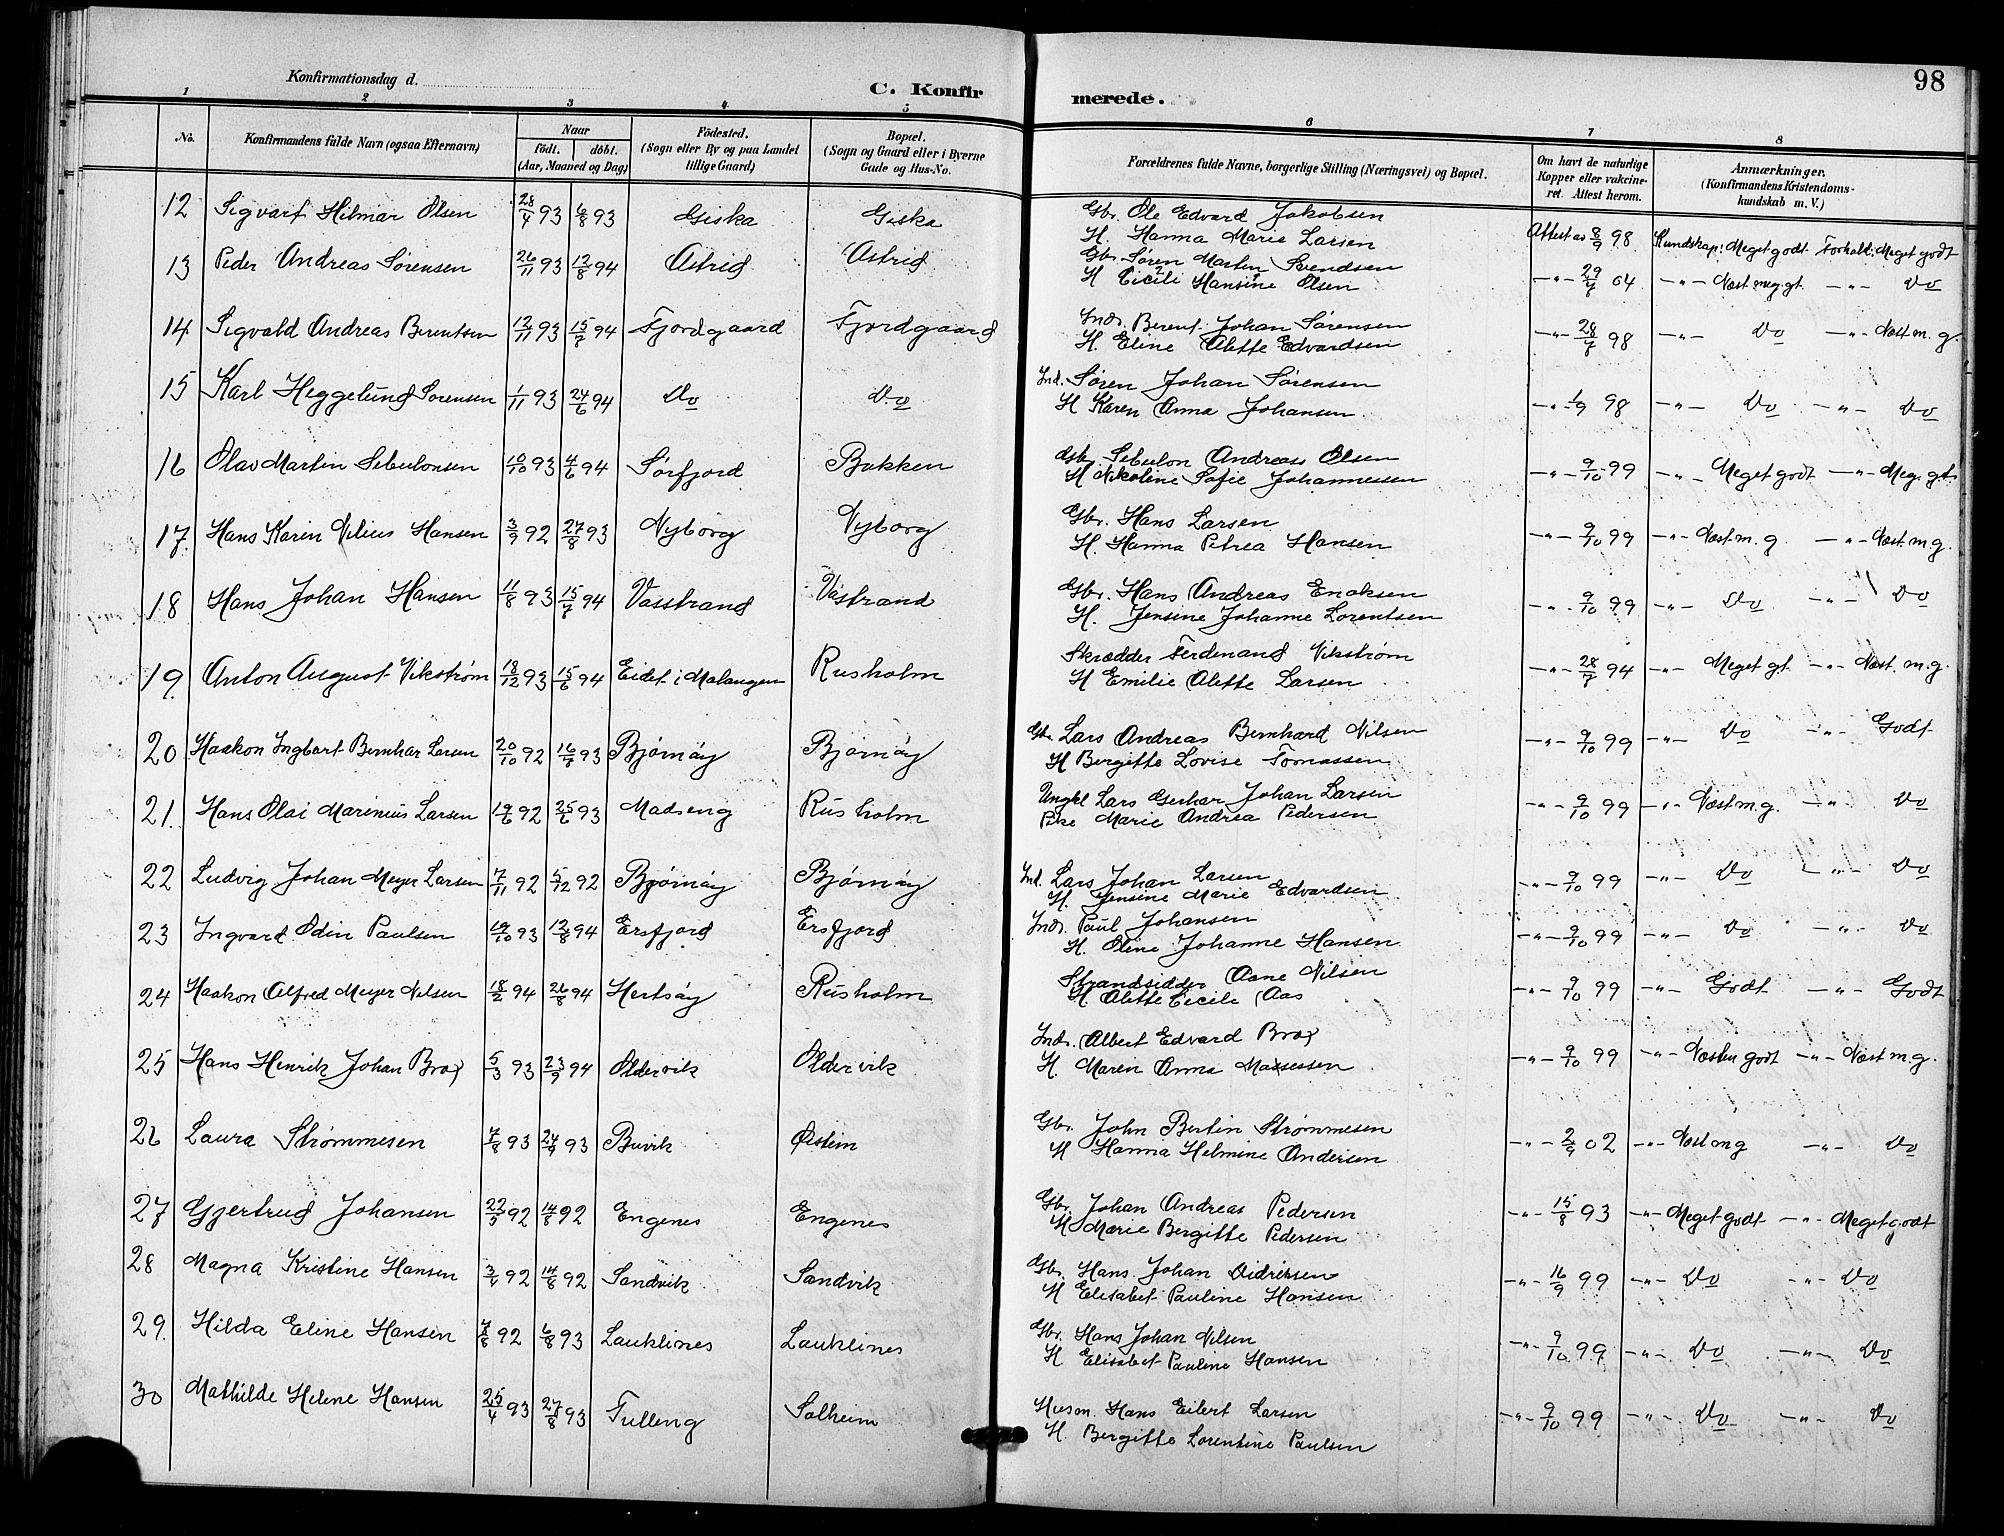 98
Konfirmationsdag d.
C. Konfirmerede.
1 2 3 4 5 6 7 8
No. Konfirmandens fulde Navn (ogsaa Efternavn) Naar födt. döbt. (Aar, Maaned og Dag) Födested. (Sogn eller By og paa Landet tillige Gaard) Bopæl. (Sogn og Gaard eller i Byerne Gade og Hus-No. Forældrenes fulde Navne, borgerlige Stilling (Næringsvei) og Bopæl. Om havt de naturlige Kopper eller vakcineret. Attest herom. Anmærkninger, (Konfirmandens Kristendomskundskab m. V.)
12 Sigvart Hilmar Olsen 28/4 93 6/8 93 Giska Giska Gbr. Ole Edvard Jakobsen
H. Hanna Marie Larsen Attest av 8/9 98 Kundskap: Meget godt Forhold: Meget godt
13 Peder Andreas Sørensen 26/11 93 12/8 94 Astrid Astrid Gbr. Søren Martin Svendsen
H Cicili Hansine Olsen -"- 29/7 04 -"- Næst meg. gt. -"- Do
14 Sigvald Andreas Berentsen 12/11 93 15/7 94 Fjordgaard Fjordgaard Indr. Berent Johan Sørensen
H. Eline Alette Edvardsen -"- 28/7 98 -"- Do -"- Næst m. g.
15 Karl Heggelund Sørensen 1/11 93 24/6 94 Do Do Ind. Søren Johan Sørensen
H Karen Anna Johansen -"- 1/9 98 -"- Do -"- Do
16 Olav Martin Sebulonsen 10/10 93 4/6 94 Sørfjord Bakken Gbr. Sebulon Andreas Olsen
H Nikoline Sofie Johannessen -"- 9/10 99 -"- Meget godt -"- Meg. gt.
17. Hans Karin Nilius Hansen 3/9 92 27/8 93 Nyborg Nyborg Gbr. Hans Larsen
H. Hanna Petrea Hansen -"- 9/10 99 -"- Næst m. g. -"- Næst. m. g.
18 Hans Johan Hansen 11/8 93 15/7 94 Vasstrand Vasstrand Gbr. Hans Andreas Enoksen
H. Jensine Johanne Lorentsen -"- 9/10 99 -"- Do -"- Do
19. Anton August Vikstrøm 18/12 93 15/6 94 Eidet i Malangen Rusholm Skrædder Ferdinand Vikstrøm
H Emilie Alette Larsen -"- 28/7 94 -"- Meget gt. -"- Næst. m. g.
20 Haakon Ingbart Bernhar Larsen 20/10 92 16/7 93 Bjørnøy Bjørnøy Gbr. Lars Andreas Bernhard Nilsen
H Bergitte Lovise Tomassen -"- 9/10 99 -"- Do -"- Godt
21. Hans Olai Marinius Larsen 19/6 92 25/6 93 Madseng Rusholm Ungkl Lars Gerhar Johan Larsen
Pike Marie Andrea Pedersen -"- 9/10 99 -"- Næst m. g. -"- Do
22 Ludvig Johan Meyer Larsen 7/11 92 5/12 92 Bjørnøy Bjørnøy Ind. Lars Johan Larsen
H. Jensine Marie Edvardsen -"- 9/10 99 -"- Do -"- Do
23 Ingvard Odin Paulsen 19/10 93 12/8 94 Ersfjord Ersfjord Indr. Paul Johansen
H. Oline Johanne Hansen -"- 9/10 99 -"- Do -"- Do
24 Haakon Alfred Meyer Nilsen 18/2 94 26/8 94 Hertsøy Rusholm Strandsidder Aane Nilsen
H Alette Cecile Aas -"- 9/10 99 -"- Godt -"- Godt
25 Hans Henrik Johan Brox 5/3 93 23/9 94 Oldervik Oldervik Indr. Albert Edvard Brox
H. Maren Anna -"- 9/10 99 -"- Næsten godt -"- Næst m. g.
26 Laura Strømmesen 7/8 93 24/9 93 Buvik Østeim Gbr. John Bertin Strømmesen
H Hanna Helmine Andersen -"- 2/9 02 -"- Næst m g -"- Do
27 Gjertrud Johansen 22/5 92 14/8 92 Engenes Engenes Gbr. Johan Andreas Pedersen
H Marie Bergitte Pedersen -"- 15/8 93 -"- Meget godt -"- Meget godt
28 Magna Kristine Hansen 3/4 92 14/8 92 Sandvik Sandvik Gbr. Hans Johan Didriksen
H Elisabet Pauline Hansen -"- 16/9 99 -"- Do -"- Do
29. Hilda Eline Hansen 7/8 92 6/8 93 Lauklines Lauklines Gbr. Hans Johan Nilsen
H Elisabet Pauline Hansen -"- 9/10 99 -"- Do -"- Do
30 Mathilde Helene Hansen 25/4 93 27/8 93 Tulleng Solheim Husm. Hans Eilert Larsen
H. Bergitte Lorentine Paulsen -"- 9/10 99 -"- Do -"- Do